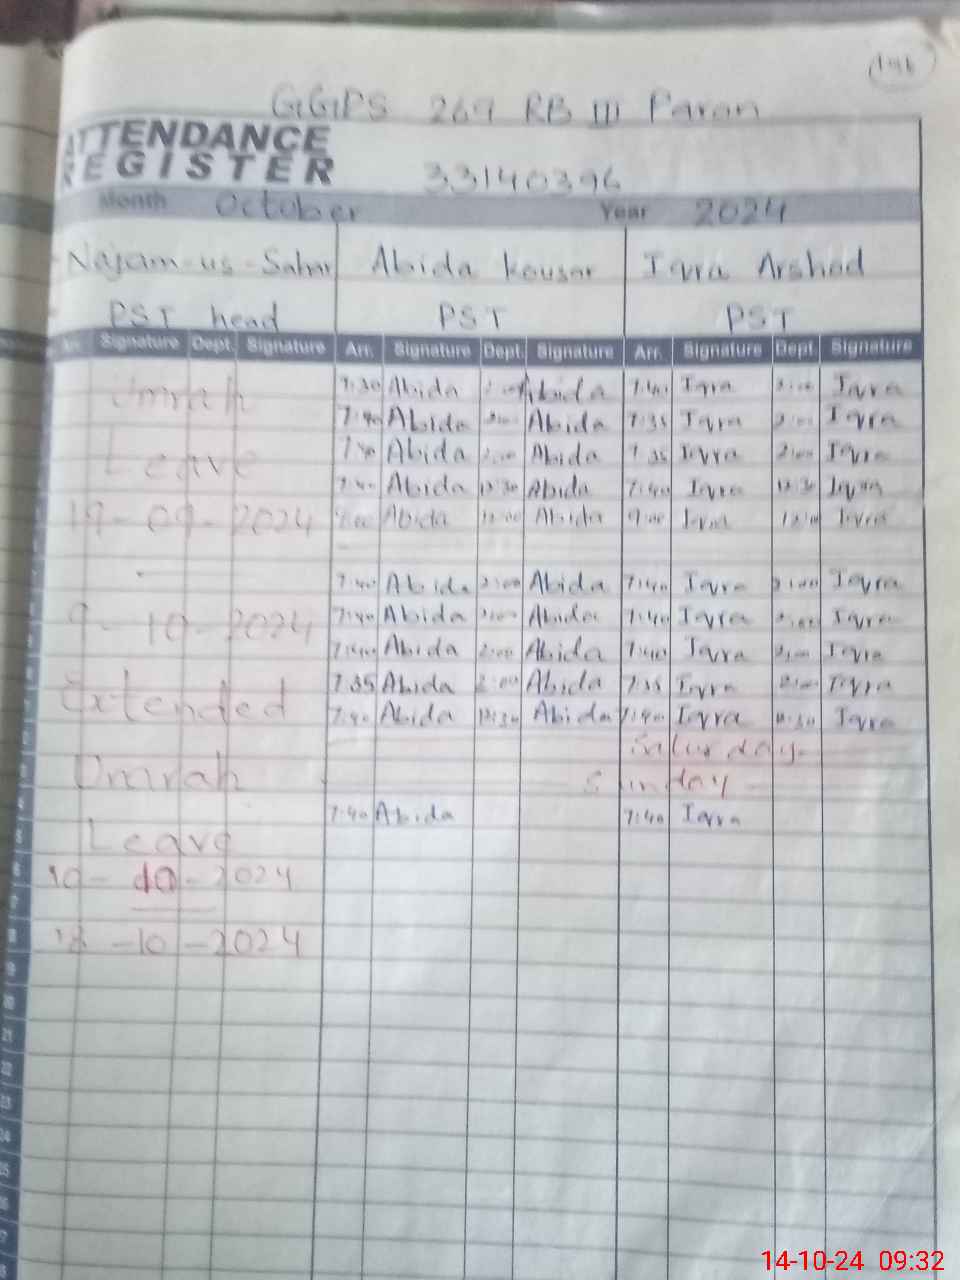 GGPS 269 RB III Paran
ATTENDANCE
REGISTER 33140396
Month October Year 2024
Najam-us-Sahar Abida kousar Iqra Arshad
PST head PST PST
Arr. Signature Dept. Signature Arr. Signature Dept. Signature Arr. Signature Dept. Signature
Umrah 7:30 Abida 2:00 Abida 7:40 Iqra 2:00 Iqra
7:40 Abida 2:00 Abida 7:35 Iqra 2:00 Iqra
Leave 7:40 Abida 2:00 Abida 7:35 Iqra 2:00 Iqra
7:40 Abida 12:30 Abida 7:40 Iqra 12:30 Iqra
19-09-2024 9:00 Abida 12:00 Abida 9:00 Iqra 12:00 Iqra
7:40 Abida 2:00 Abida 7:40 Iqra 2:00 Iqra
9-10-2024 7:40 Abida 2:00 Abida 7:40 Iqra 2:00 Iqra
7:40 Abida 2:00 Abida 7:40 Iqra 2:00 Iqra
Extended 7:35 Abida 2:00 Abida 7:35 Iqra 2:00 Iqra
7:40 Abida 12:30 Abida 7:40 Iqra 12:30 Iqra
Saturday
Omrah Sunday
7:40 Abida 7:40 Iqra
Leave
10-10-2024
18-10-2024
20
21
22
23
24
14-10-24 09:32